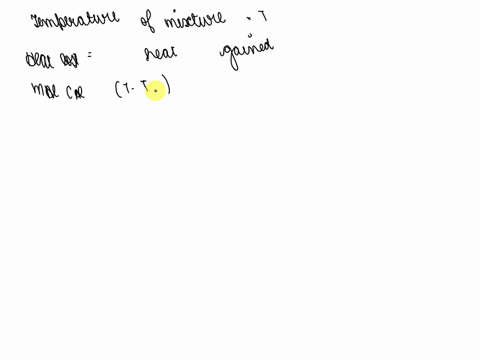 Temperature of mixture = T
Heat lost = heat gained
m_Al C_Al (T - T